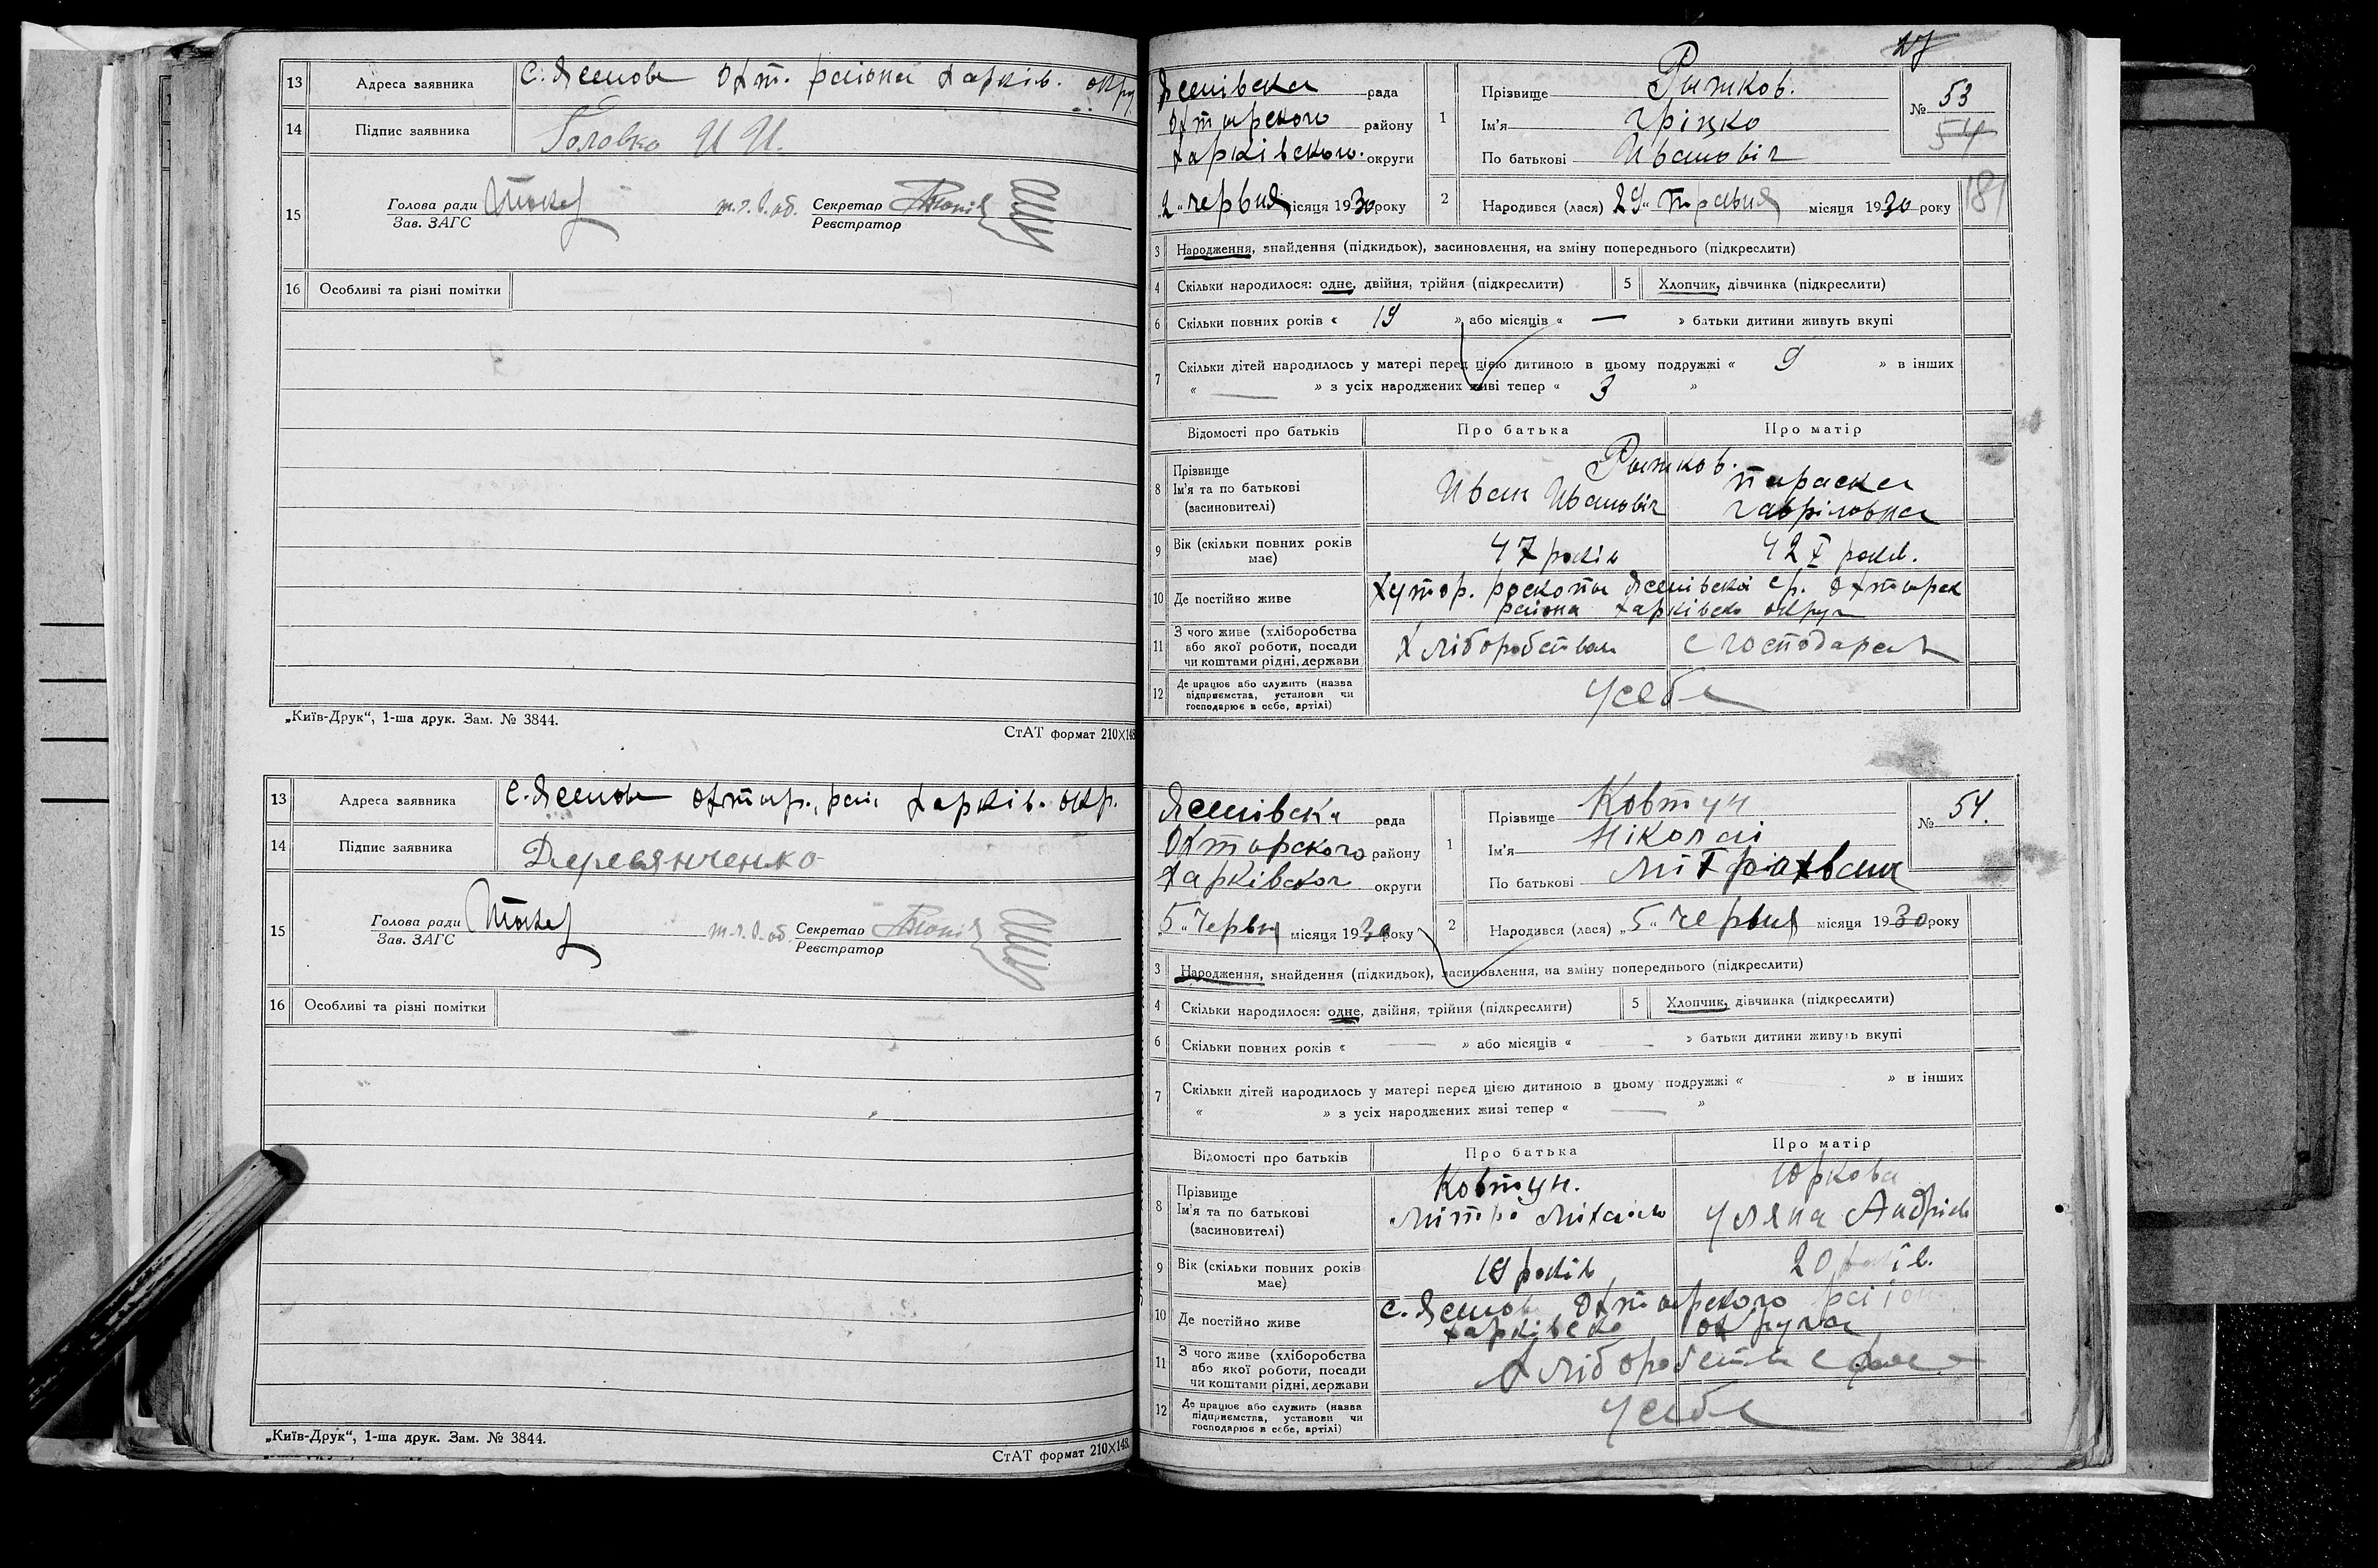 13 Адреса заявника С. Ясенове Охт. раіона Харків. окру
14 Підпис заявника Головко И И.
15 Голова ради Зав. ЗАГС т.в.об. Секретар Реєстратор
16 Особливі та різні помітки
„Київ-Друк“, 1-ша друк. Зам. № 3844.
СтАТ формат 210×148
13 Адреса заявника С. Ясенове Охтир., раі Харків. окр.
14 Підпис заявника Деревянченко
15 Голова ради Зав. ЗАГС т.в.об. Секретар Реєстратор
16 Особливі та різні помітки
„Київ-Друк“, 1-ша друк. Зам. № 3844.
СтАТ формат 210×148.
27
Ясенівска рада
Охтирского району
Харківского округи
„2“ червня місяця 1930 року
1 Прізвище Рыжков.
Ім'я Гріцко
По батькові Иванович
№ 53
54
2 Народився (лася) „29“ травня місяця 1930 року
181
3 Народження, знайдення (підкидьок), засиновлення, на зміну попереднього (підкреслити)
4 Скільки народилося: одне, двійня, трійня (підкреслити) 5 Хлопчик, дівчинка (підкреслити)
6 Скільки повних років « 19 » або місяців « — » батьки дитини живуть вкупі
7 Скільки дітей народилось у матері перед цією дитиною в цьому подружжі « 9 » в інших
« — » з усіх народжених живі тепер « 3 »
Відомості про батьків Про батька Про матір
8 Прізвище Рыжков.
Ім'я та по батькові Иван Иванович Параска Гавріловна
(засиновителі)
9 Вік (скільки повних років має) 47 років 42 років.
10 Де постійно живе Хутор. Ясенівскоі ср. Охтирск
раіона Харківско округи
11 З чого живе (хліборобства
або якої роботи, посади Хліборобства с господарст
чи коштами рідні, держави
12 Де працює або служить (назва
підприємства, установи чи У себе
господарює в себе, артілі)
Ясенівска рада
Охтирского району
Харківског округи
„5“ Червня місяця 1930 року
1 Прізвище Ковтун
Ім'я Ніколаі
По батькові
№ 54.
2 Народився (лася) „5“ червня місяця 1930 року
3 Народження, знайдення (підкидьок), засиновлення, на зміну попереднього (підкреслити)
4 Скільки народилося: одне, двійня, трійня (підкреслити) 5 Хлопчик, дівчинка (підкреслити)
6 Скільки повних років « — » або місяців « — » батьки дитини живуть вкупі
7 Скільки дітей народилось у матері перед цією дитиною в цьому подружжі « » в інших
« » з усіх народжених живі тепер « — »
Відомості про батьків Про батька Про матір
8 Прізвище Ковтун. Юркова
Ім'я та по батькові Мітро Міхаіло Уляна Андрієв
(засиновителі)
9 Вік (скільки повних років має) років 20 років.
10 Де постійно живе С. Ясенове Охтирского раіона
Харківско округа
11 З чого живе (хліборобства
або якої роботи, посади Хліборобства
чи коштами рідні, держави
12 Де працює або служить (назва
підприємства, установи чи У себе
господарює в себе, артілі)